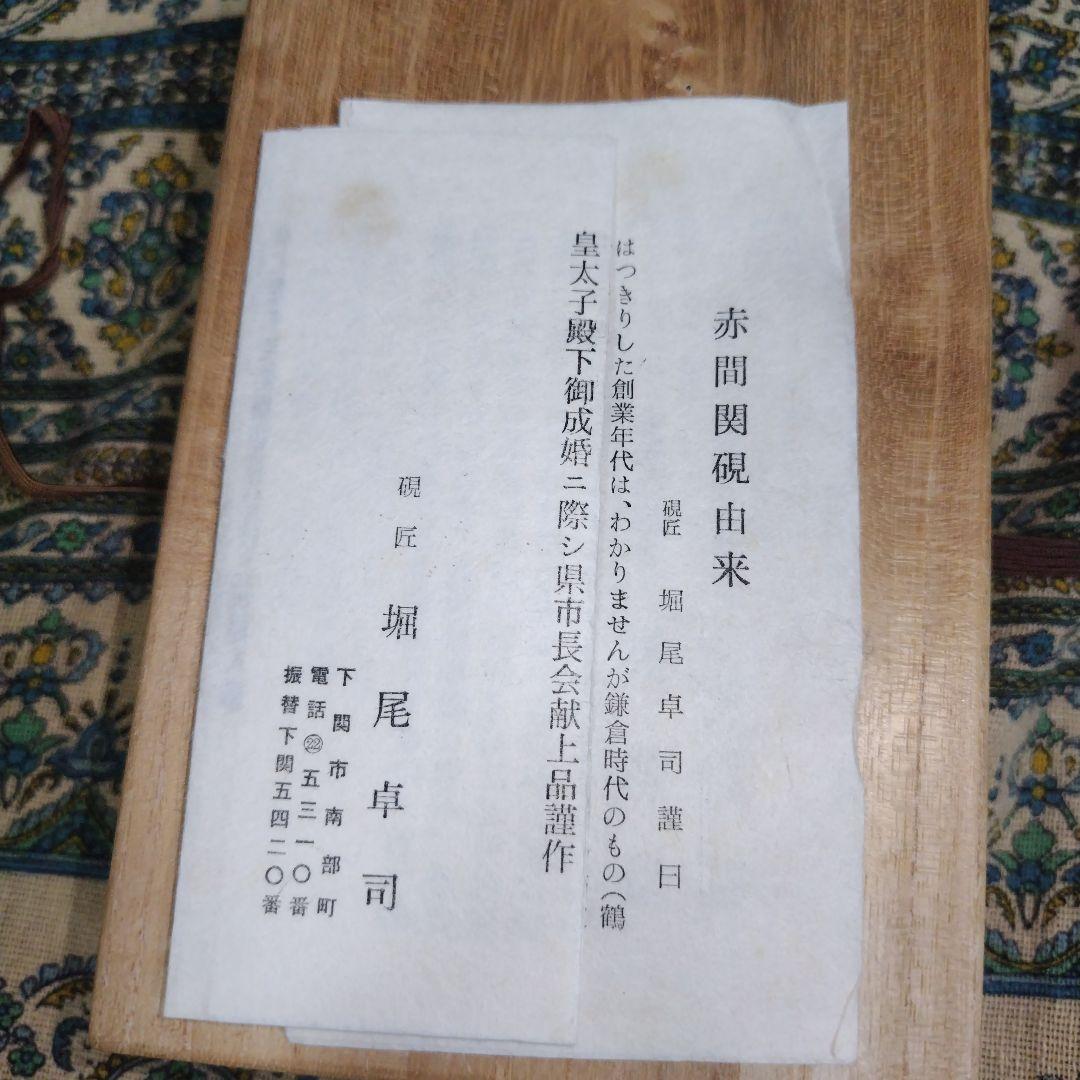 赤間関硯由来
硯匠 堀尾卓司謹曰
はつきりした創業年代は、わかりませんが鎌倉時代のもの（鶴
皇太子殿下御成婚ニ際シ県市長会献上品謹作
硯匠 堀尾卓司
下関市南部町
電話㉒五三一〇番
振替下関五四二〇番